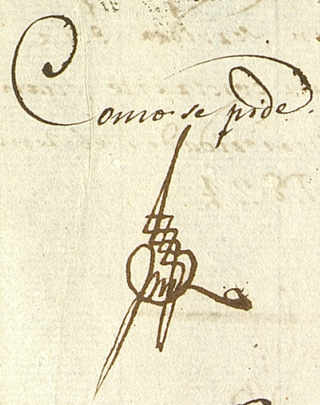 Como se pide.